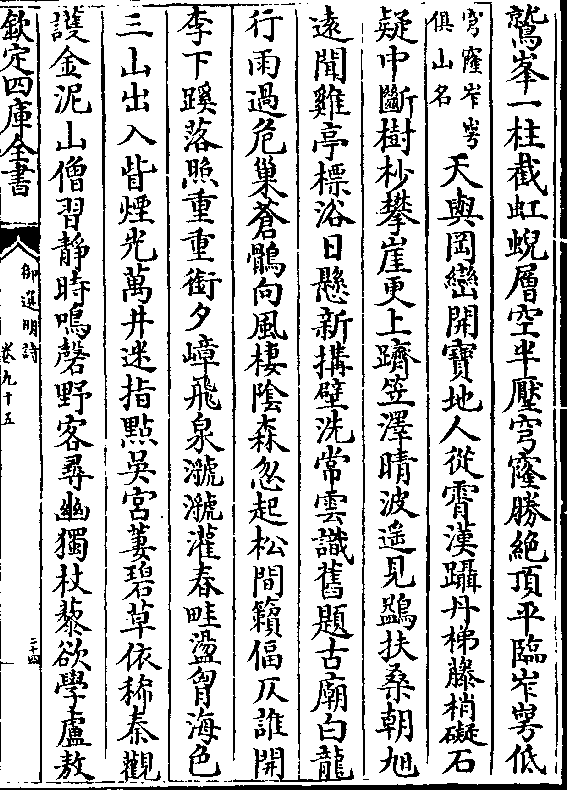 鷲峯一柱截虹蜺層空半壓穹窿勝絶頂平臨岝㟧低
穹窿岝㟧
俱山名
天與岡巒開寶地人從霄漢躡丹梯藤梢礙石
疑中斷樹杪攀崖更上躋笠澤晴波遥見鷁扶桑朝旭
遠聞雞亭標浴日懸新搆壁洗常雲識舊題古廟白龍
行雨過危巢蒼鶻向風棲陰森忽起松間籟偪仄誰開
李下蹊落照重重銜夕嶂飛泉㶁㶁灌春畦盪胷海色
三山出入眥煙光萬井迷指點吳宫蔓碧草依稀秦觀
護金泥山僧習静時鳴磬野客尋幽獨杖藜欲學盧敖
欽定四庫全書
御選明詩
卷九十五
二十四